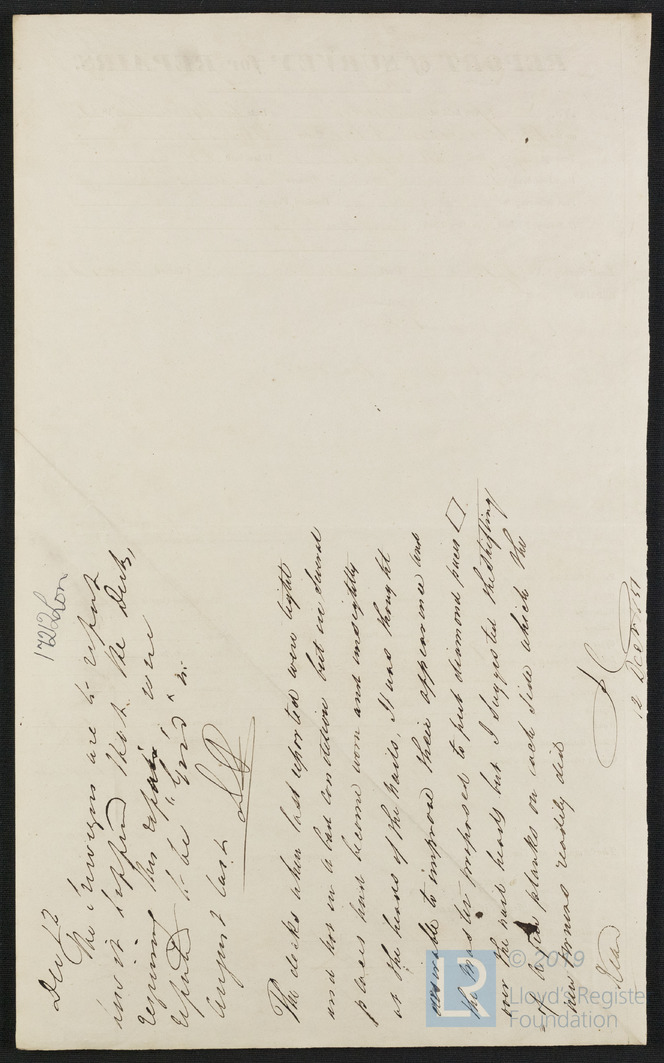 1722 Lon
Dec 12
The Surveyors are to report
how it happened that the Decks,
requiring this repair were
reported to be "Good" in
August last
The decks when last reported were tight
and not in a bad condition but in several
places have become worn and unsightly
at the heads of the nails, It was thought
desirable to improve their appearance and
the Master proposed to put diamond pieces
over the nail heads but I suggested the shifting
of the planks on each side which the
new Owners readily did
Read
12 Dec 1851
© 2019
Lloyd's Register
Foundation